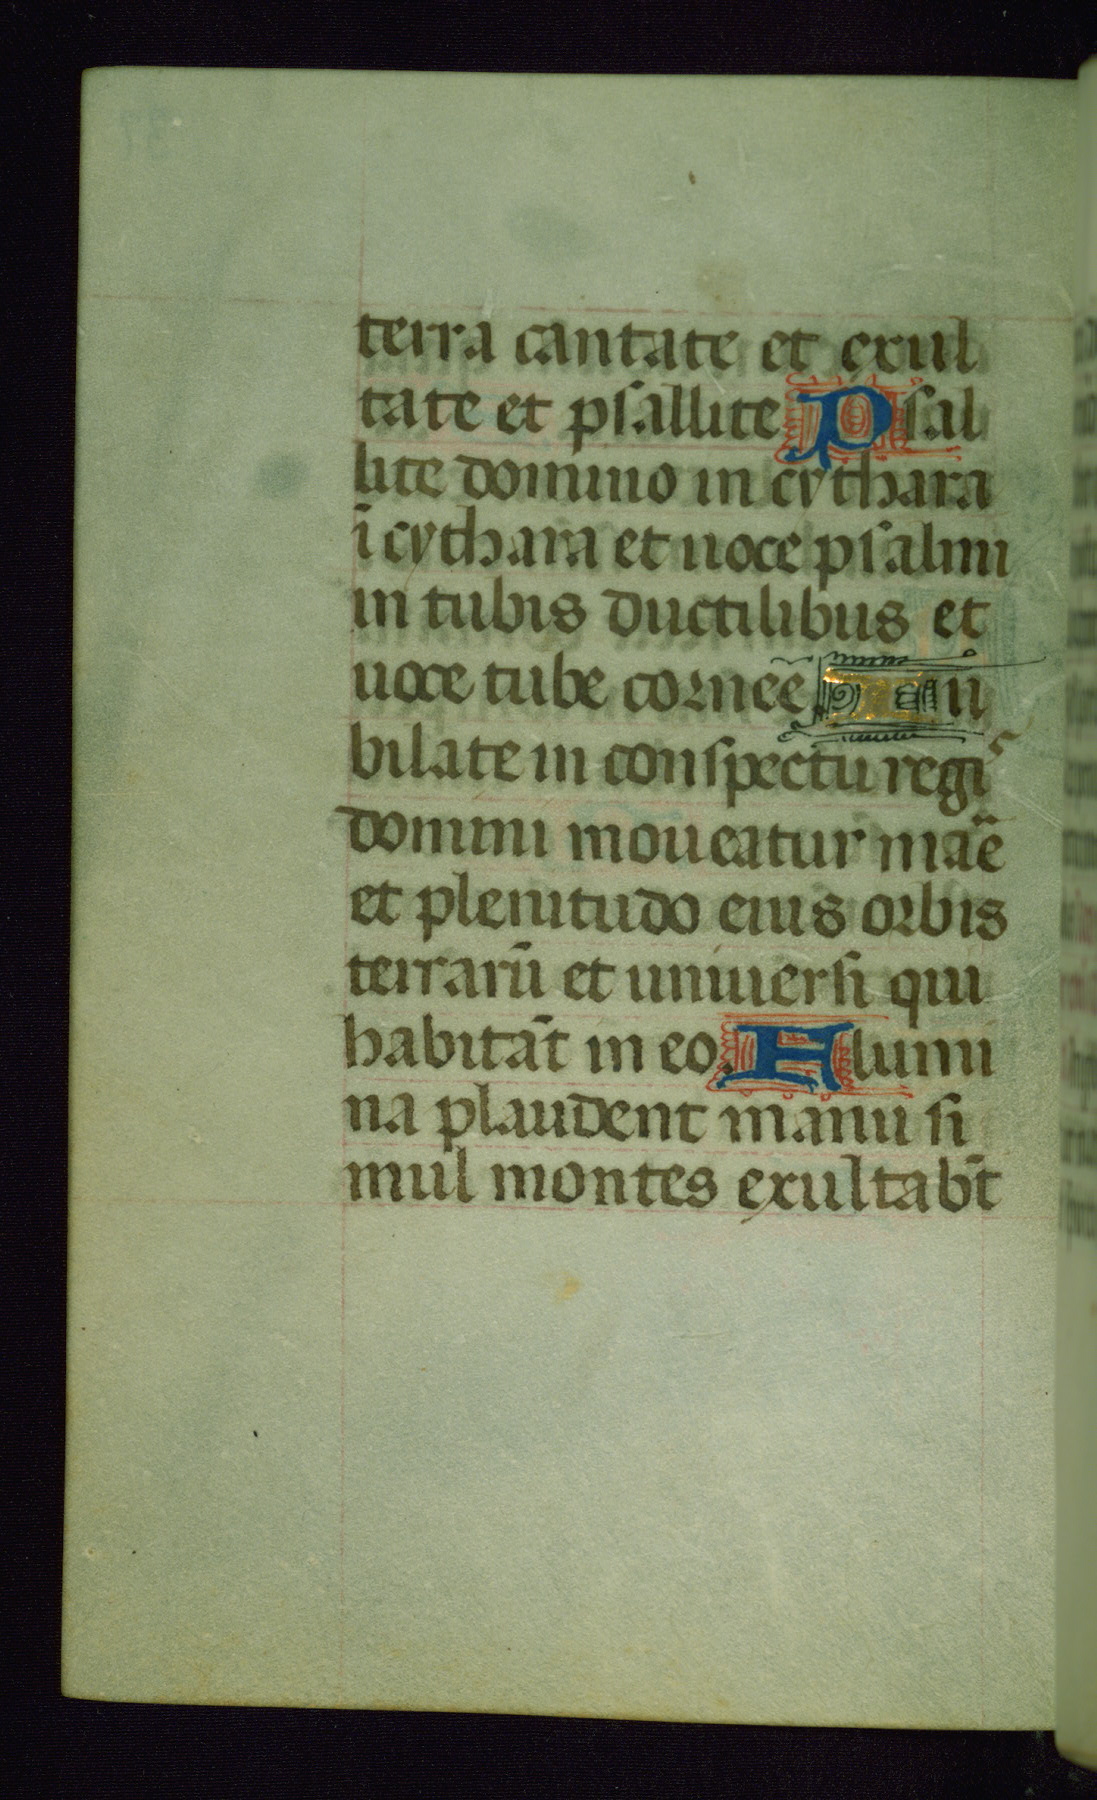 terra cantate et exul
tate et psallite Psal
lite domino in cythara
ī cythara et uoce psalmi
in tubis ductilibus et
uoce tube cornee Iu
bilate in conspectu regis
domini moueatur maē
et plenitudo eius orbis
terrarū et uniuersi qui
habitāt in eo. Flumi
na plaudent manu si
mul montes exultabt̄